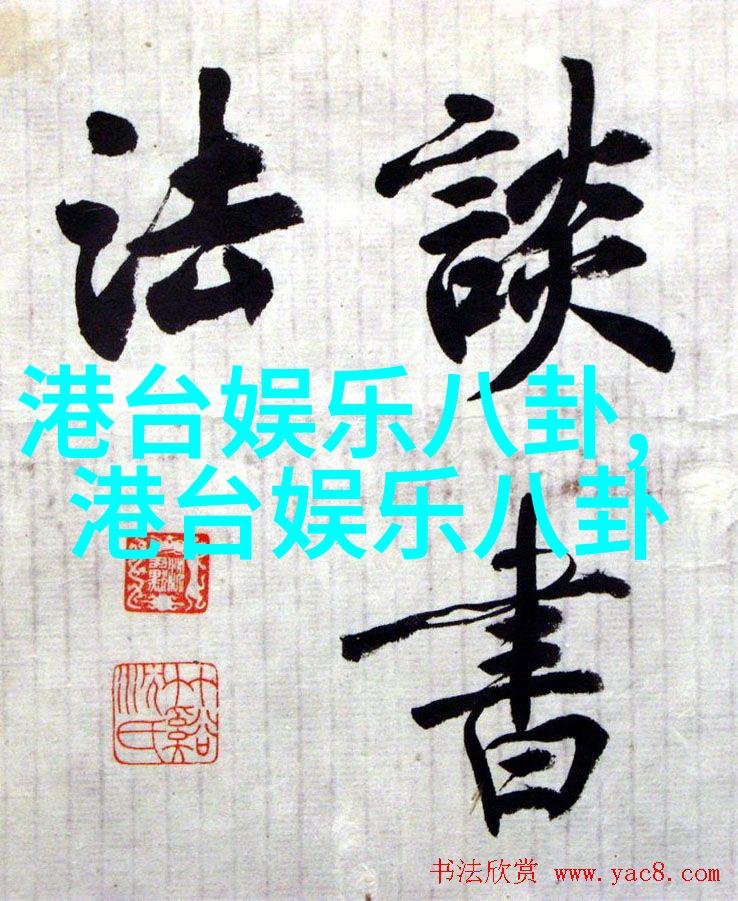 談書
法
港台娱乐八卦,
港台娱乐八卦
书法欣赏 www.yac8.com